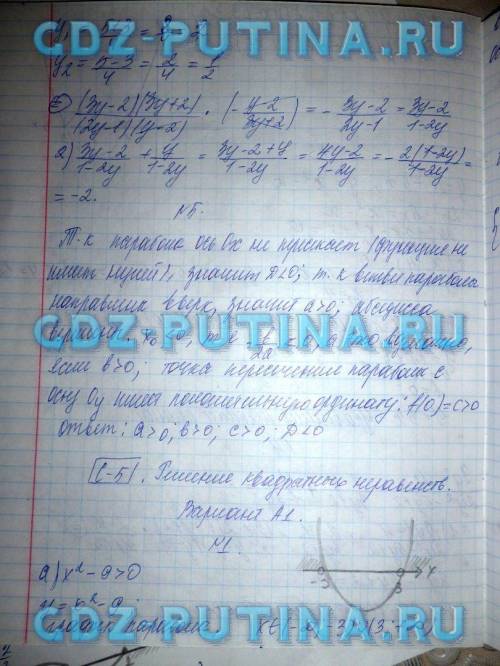 GDZ-PUTINA.RU
y₂ = (5-3)/4 = 2/4 = 1/2
= (3y-2)(3y+2)/((2y-1)(y-2)) · (-(y-2)/(3y+2)) = -(3y-2)/(2y-1) = (3y-2)/(1-2y)
GDZ-PUTINA.RU
2) (3y-2)/(1-2y) + y/(1-2y) = (3y-2+y)/(1-2y) = (4y-2)/(1-2y) = -2(1-2y)/(1-2y) =
= -2.
N5.
Т.к парабола ось Ox не пересекает (функция не
имеет нулей), значит D<0; т.к ветви параболы
направлены вверх, значит a>0; абсцисса
GDZ-PUTINA.RU
если b>0; точка пересечения параболы с
осью Oy имеет положительную ординату: f(0)=c>0
GDZ-PUTINA.RU
ответ: a>0; b>0; c>0; D<0
С-5. Решение квадратных неравенств.
Вариант А1.
N1.
а) x²-9>0
-3 3 x
GDZ-PUTINA.RU